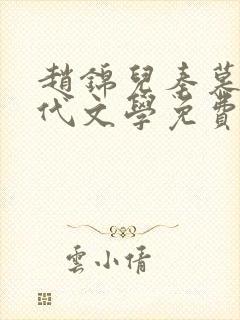 趙錦兒秦慕
代文學免費
雲小倩